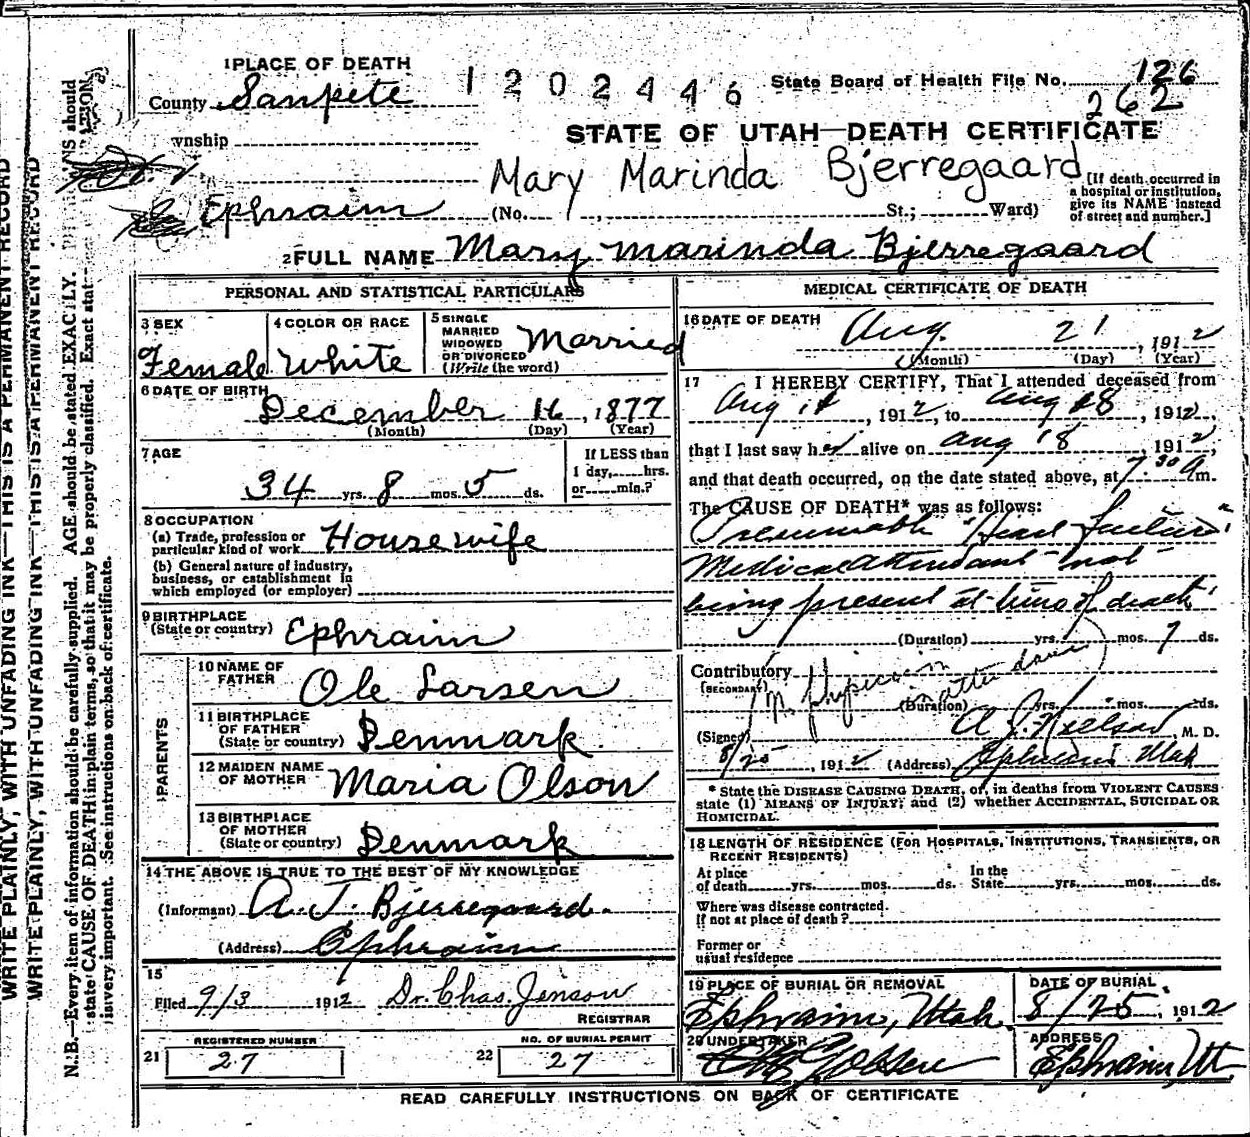 1 PLACE OF DEATH
1202446
State Board of Health File No. 126
262
County Sanpete
STATE OF UTAH—DEATH CERTIFICATE
wnship
Mary Marinda Bjerregaard
[If death occurred in
a hospital or institution,
give its NAME instead
of street and number.]
Ephraim (No. , St.; Ward)
2 FULL NAME Mary Marinda Bjerregaard
PERSONAL AND STATISTICAL PARTICULARS
3 SEX
Female
4 COLOR OR RACE
White
5 SINGLE
MARRIED
WIDOWED
OR DIVORCED
(Write the word)
Married
6 DATE OF BIRTH
December 16, 1877
(Month) (Day) (Year)
7 AGE
34 yrs. 8 mos. 5 ds.
If LESS than
1 day, hrs.
or min.?
8 OCCUPATION
(a) Trade, profession or
particular kind of work Housewife
(b) General nature of industry,
business, or establishment in
which employed (or employer)
9 BIRTHPLACE
(State or country) Ephraim
PARENTS
10 NAME OF
FATHER Ole Larsen
11 BIRTHPLACE
OF FATHER
(State or country) Denmark
12 MAIDEN NAME
OF MOTHER Maria Olson
13 BIRTHPLACE
OF MOTHER
(State or country) Denmark
14 THE ABOVE IS TRUE TO THE BEST OF MY KNOWLEDGE
(Informant) A. J. Bjerregaard.
(Address) Ephraim
15
Filed 9/3 1912 Dr. Chas. Jenson
REGISTRAR
REGISTERED NUMBER
21 27
NO. OF BURIAL PERMIT
22 27
MEDICAL CERTIFICATE OF DEATH
16 DATE OF DEATH
Aug. 21, 1912
(Month) (Day) (Year)
17 I HEREBY CERTIFY, That I attended deceased from
Aug , 1912, to Aug 18, 1912,
that I last saw her alive on Aug 18 1912
and that death occurred, on the date stated above, at 7 30 a m.
The CAUSE OF DEATH* was as follows:
Presumable "Heart failure"
Medical attendant not
being present at time of death.
(Duration) yrs. mos. 7 ds.
Contributory
(SECONDARY)
No physician in attendance
(Duration) yrs. mos. ds.
(Signed) A. J. Nielson, M. D.
8/25, 1912 (Address) Ephraim Utah
* State the DISEASE CAUSING DEATH, or, in deaths from VIOLENT CAUSES
state (1) MEANS OF INJURY; and (2) whether ACCIDENTAL, SUICIDAL OR
HOMICIDAL.
18 LENGTH OF RESIDENCE (FOR HOSPITALS, INSTITUTIONS, TRANSIENTS, OR
RECENT RESIDENTS)
At place
of death yrs. mos. ds.
In the
State yrs. mos. ds.
Where was disease contracted.
If not at place of death?
Former or
usual residence
19 PLACE OF BURIAL OR REMOVAL
Ephraim, Utah.
DATE OF BURIAL
8/25, 1912
20 UNDERTAKER
ADDRESS
Ephraim, Ut
READ CAREFULLY INSTRUCTIONS ON BACK OF CERTIFICATE
WRITE PLAINLY, WITH UNFADING INK—THIS IS A PERMANENT RECORD
WRITE PLAINLY, WITH UNFADING INK—THIS IS A PERMANENT RECORD
N. B.—Every item of information should be carefully supplied. AGE should be stated EXACTLY. should
state CAUSE OF DEATH in plain terms, so that it may be properly classified. Exact stat
is very important. See instructions on back of certificate.